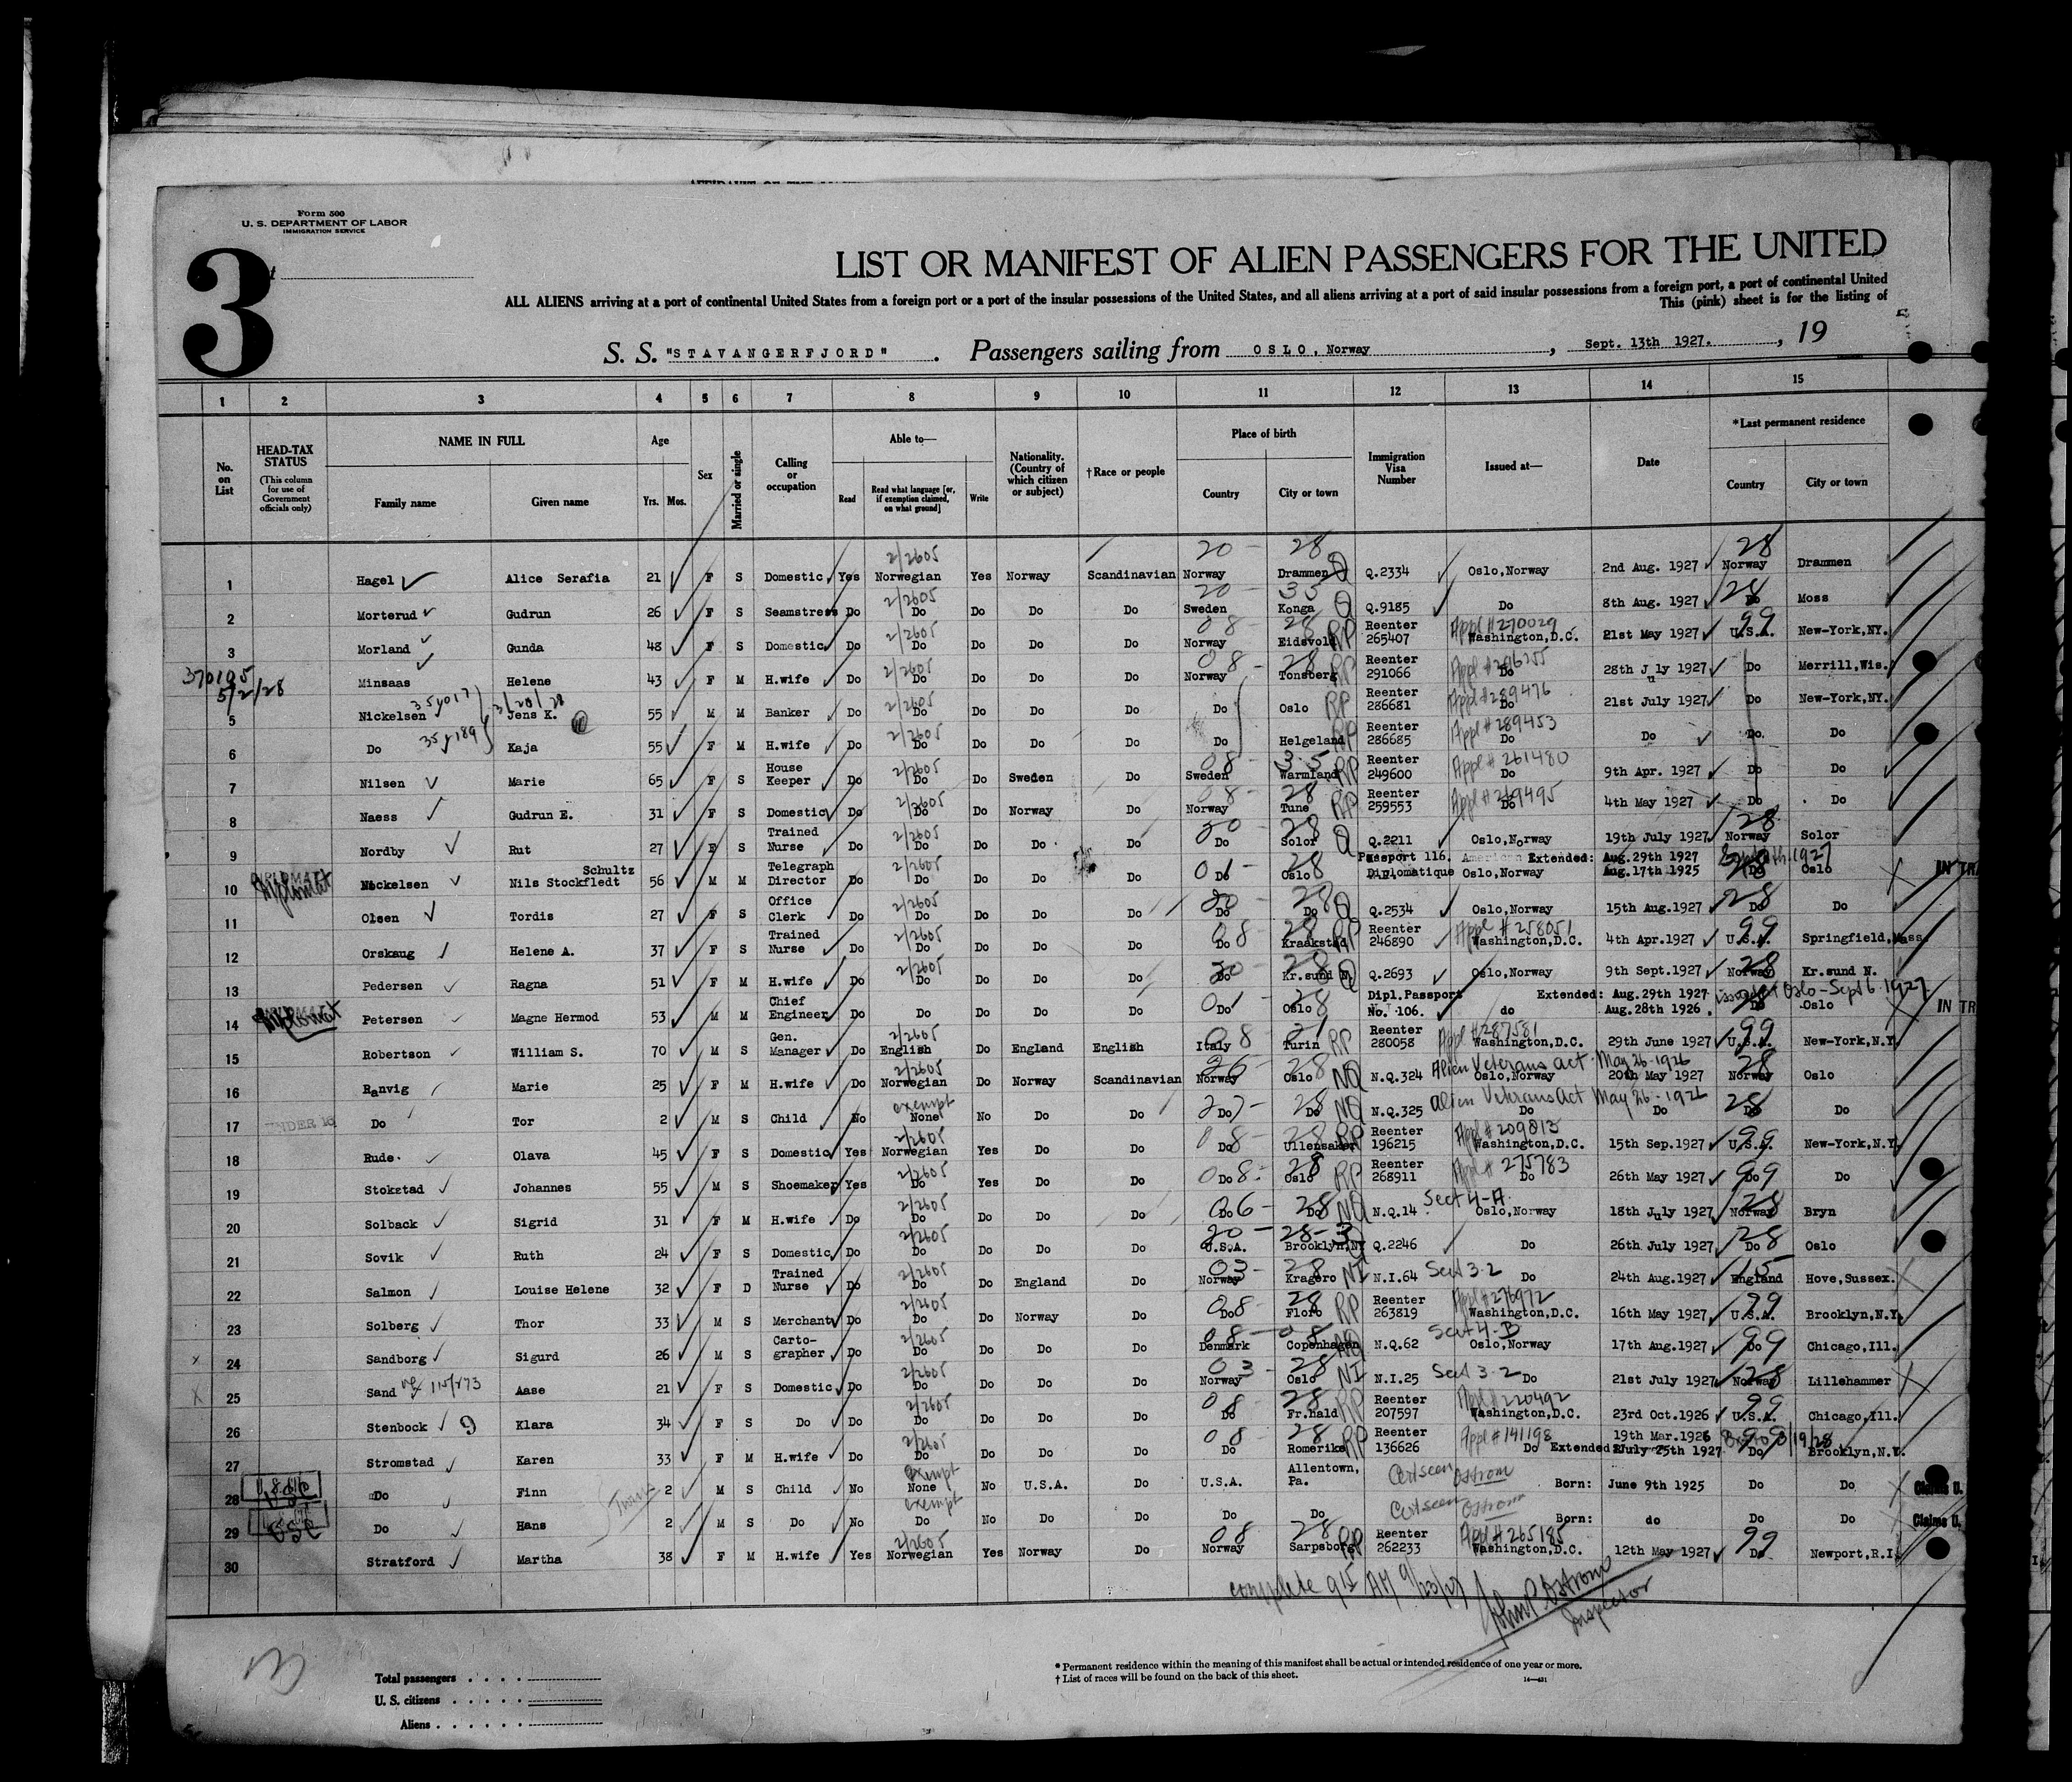 Form 500
U. S. DEPARTMENT OF LABOR
IMMIGRATION SERVICE
3
LIST OR MANIFEST OF ALIEN PASSENGERS FOR THE UNITED
ALL ALIENS arriving at a port of continental United States from a foreign port or a port of the insular possessions of the United States, and all aliens arriving at a port of said insular possessions from a foreign port, a port of continental United
This (pink) sheet is for the listing of
S. S. "STAVANGERFJORD". Passengers sailing from OSLO, Norway, Sept. 13th 1927., 19
1 2 3 4 5 6 7 8 9 10 11 12 13 14 15
No. on List HEAD-TAX STATUS (This column for use of Government officials only) NAME IN FULL Family name Given name Age Yrs. Mos. Sex Married or single Calling or occupation Able to— Read Read what language [or, if exemption claimed, on what ground] Write Nationality. (Country of which citizen or subject) †Race or people Place of birth Country City or town Immigration Visa Number Issued at— Date *Last permanent residence Country City or town
1 Hagel Alice Serafia 21 F S Domestic Yes 2/2605 Norwegian Yes Norway Scandinavian 20 - 28 Norway Drammen Q Q.2334 Oslo,Norway 2nd Aug. 1927 28 Norway Drammen
2 Morterud Gudrun 26 F S Seamstress Do 2/2605 Do Do Do Do 20 - 35 Sweden Konga Q Q.9185 Do 8th Aug. 1927 28 Do Moss
3 Morland Gunda 48 F S Domestic Do 2/2605 Do Do Do Do 08 - 28 Norway Eidsvold RP Reenter 265407 Appl #270029 Washington,D.C. 21st May 1927 99 U.S.A. New-York,NY.
370195 5/2/28 Minsaas Helene 43 F M H.wife Do 2/2605 Do Do Do Do 08 - 28 Norway Tonsberg RP Reenter 291066 Do 28th July 1927 Do Merrill,Wis.
5 Nickelsen Jens K. 55 M M Banker Do 2/2605 Do Do Do Do Do Oslo RP Reenter 286681 Appl #289476 Do 21st July 1927 Do New-York,NY.
6 Do Kaja 55 F M H.wife Do 2/2605 Do Do Do Do Do Helgeland RP Reenter 286685 Appl #289453 Do Do Do. Do
7 Nilsen Marie 65 F S House Keeper Do 2/2605 Do Do Sweden Do 08 - 35 Sweden Warmland RP Reenter 249600 Appl #261480 Do 9th Apr. 1927 Do Do
8 Naess Gudrun E. 31 F S Domestic Do 2/2605 Do Do Norway Do 08 - 28 Norway Tune RP Reenter 259553 Do 4th May 1927 Do Do
9 Nordby Rut 27 F S Trained Nurse Do 2/2605 Do Do Do Do 20 - 28 Do Solor Q Q.2211 Oslo,Norway 19th July 1927 28 Norway Solor
10 Diplomat Nickelsen Nils Stockfledt Schultz 56 M M Telegraph Director Do 2/2605 Do Do Do Do 01 - 28 Do Oslo Passport 116. Diplomatique Extended: Oslo,Norway Aug.29th 1927 Aug.17th 1925 28 Do Oslo IN TR
11 Olsen Tordis 27 F S Office Clerk Do 2/2605 Do Do Do Do 20 - 28 Do Do Q Q.2534 Oslo,Norway 15th Aug.1927 28 Do Do
12 Orskaug Helene A. 37 F S Trained Nurse Do 2/2605 Do Do Do Do 08 - 28 Do Kraakstad RP Reenter 246890 Appl #258051 Washington,D.C. 4th Apr.1927 99 U.S.A. Springfield,Mass.
13 Pedersen Ragna 51 F M H.wife Do 2/2605 Do Do Do Do 20 - 28 Do Kr.sund N. Q Q.2693 Oslo,Norway 9th Sept.1927 28 Norway Kr.sund N.
14 Diplomat Petersen Magne Hermod 53 M M Chief Engineer Do Do Do Do Do 01 - 28 Do Oslo Dipl.Passport No. 106. Extended: do Aug.29th 1927 Aug.28th 1926. issued at Oslo - Sept 6 1927 28 Do Oslo IN TR
15 Robertson William S. 70 M S Gen. Manager Do 2/2605 English Do England English 08 - 21 Italy Turin RP Reenter 280058 Appl #287581 Washington,D.C. 29th June 1927 99 U.S.A. New-York,N.Y.
16 Ranvig Marie 25 F M H.wife Do 2/2605 Norwegian Do Norway Scandinavian 26 - 28 Norway Oslo NQ N.Q.324 Alien Veterans act May 26-1926 Oslo,Norway 20th May 1927 28 Norway Oslo
17 UNDER 16 Do Tor 2 M S Child No exempt None No Do Do 27 - 28 Do Do NQ N.Q.325 Alien Veterans Act May 26-1926 Do Do 28 Do Do
18 Rude. Olava 45 F S Domestic Yes 2/2605 Norwegian Yes Do Do 08 - 28 Do Ullensaker RP Reenter 196215 Appl #209813 Washington,D.C. 15th Sep.1927 99 U.S.A. New-York,N.Y.
19 Stokstad Johannes 55 M S Shoemaker Yes 2/2605 Do Yes Do Do 08 - 28 Do Oslo RP Reenter 268911 Appl #275783 Do 26th May 1927 99 Do Do
20 Solback Sigrid 31 F M H.wife Do 2/2605 Do Do Do Do 06 - 28 Do Do NQ N.Q.14 Sect 4-A Oslo,Norway 18th July 1927 28 Norway Bryn
21 Sovik Ruth 24 F S Domestic Do 2/2605 Do Do Do Do 20 - 28-3 U.S.A. Brooklyn,NY Q.2246 Do 26th July 1927 28 Do Oslo
22 Salmon Louise Helene 32 F D Trained Nurse Do 2/2605 Do Do England Do 03 - 28 Norway Kragero NI N.I.64 Sect 3-2 Do 24th Aug.1927 15 England Hove,Sussex.
23 Solberg Thor 33 M S Merchant Do 2/2605 Do Do Norway Do 08 - 28 Do Floro RP Reenter 263819 Appl #276972 Washington,D.C. 16th May 1927 99 U.S.A. Brooklyn,N.Y.
x 24 Sandborg Sigurd 26 M S Carto-grapher Do 2/2605 Do Do Do Do 08 - 08 Denmark Copenhagen NQ N.Q.62 Sect 4-B Oslo,Norway 17th Aug.1927 99 Do Chicago,Ill.
X 25 Sand Aase 21 F S Domestic Do 2/2605 Do Do Do Do 03 - 28 Norway Oslo NI N.I.25 Sect 3-2 Do 21st July 1927 28 Norway Lillehammer
26 Stenbock 9 Klara 34 F S Do Do 2/2605 Do Do Do Do 08 - 28 Do Fr.hald RP Reenter 207597 Appl #220492 Washington,D.C. 23rd Oct.1926 99 U.S.A. Chicago,Ill.
27 Stromstad Karen 33 F M H.wife Do 2/2605 Do Do Do Do 08 - 28 Do Romerike RP Reenter 136626 Appl #141198 Do Extended 19th Mar.1926 July 25th 1927 99 Do Brooklyn,N.Y.
28 USC Do Finn Twins 2 M S Child No exempt None No U.S.A. Do U.S.A. Allentown, Pa. Cert seen Ostrom Born: June 9th 1925 Do Do Claims U.
29 USC Do Hans 2 M S Do No exempt Do No Do Do Do Do Cert seen Ostrom Born: do Do Do Claims U.
30 Stratford Martha 38 F M H.wife Yes 2/2605 Norwegian Yes Norway Do 08 28 Norway Sarpsborg RP Reenter 262233 Appl #265185 Washington,D.C. 12th May 1927 99 Do Newport,R.I.
complete 915 AM 9/23/27 John P Ostrom
Inspector
Total passengers
U. S. citizens
Aliens
* Permanent residence within the meaning of this manifest shall be actual or intended residence of one year or more.
† List of races will be found on the back of this sheet.